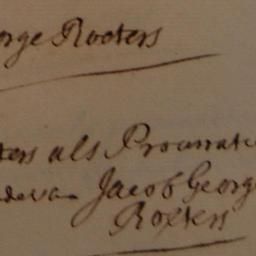 orge Rooters
ters als Procurat
de van Jacob Georg
Roters